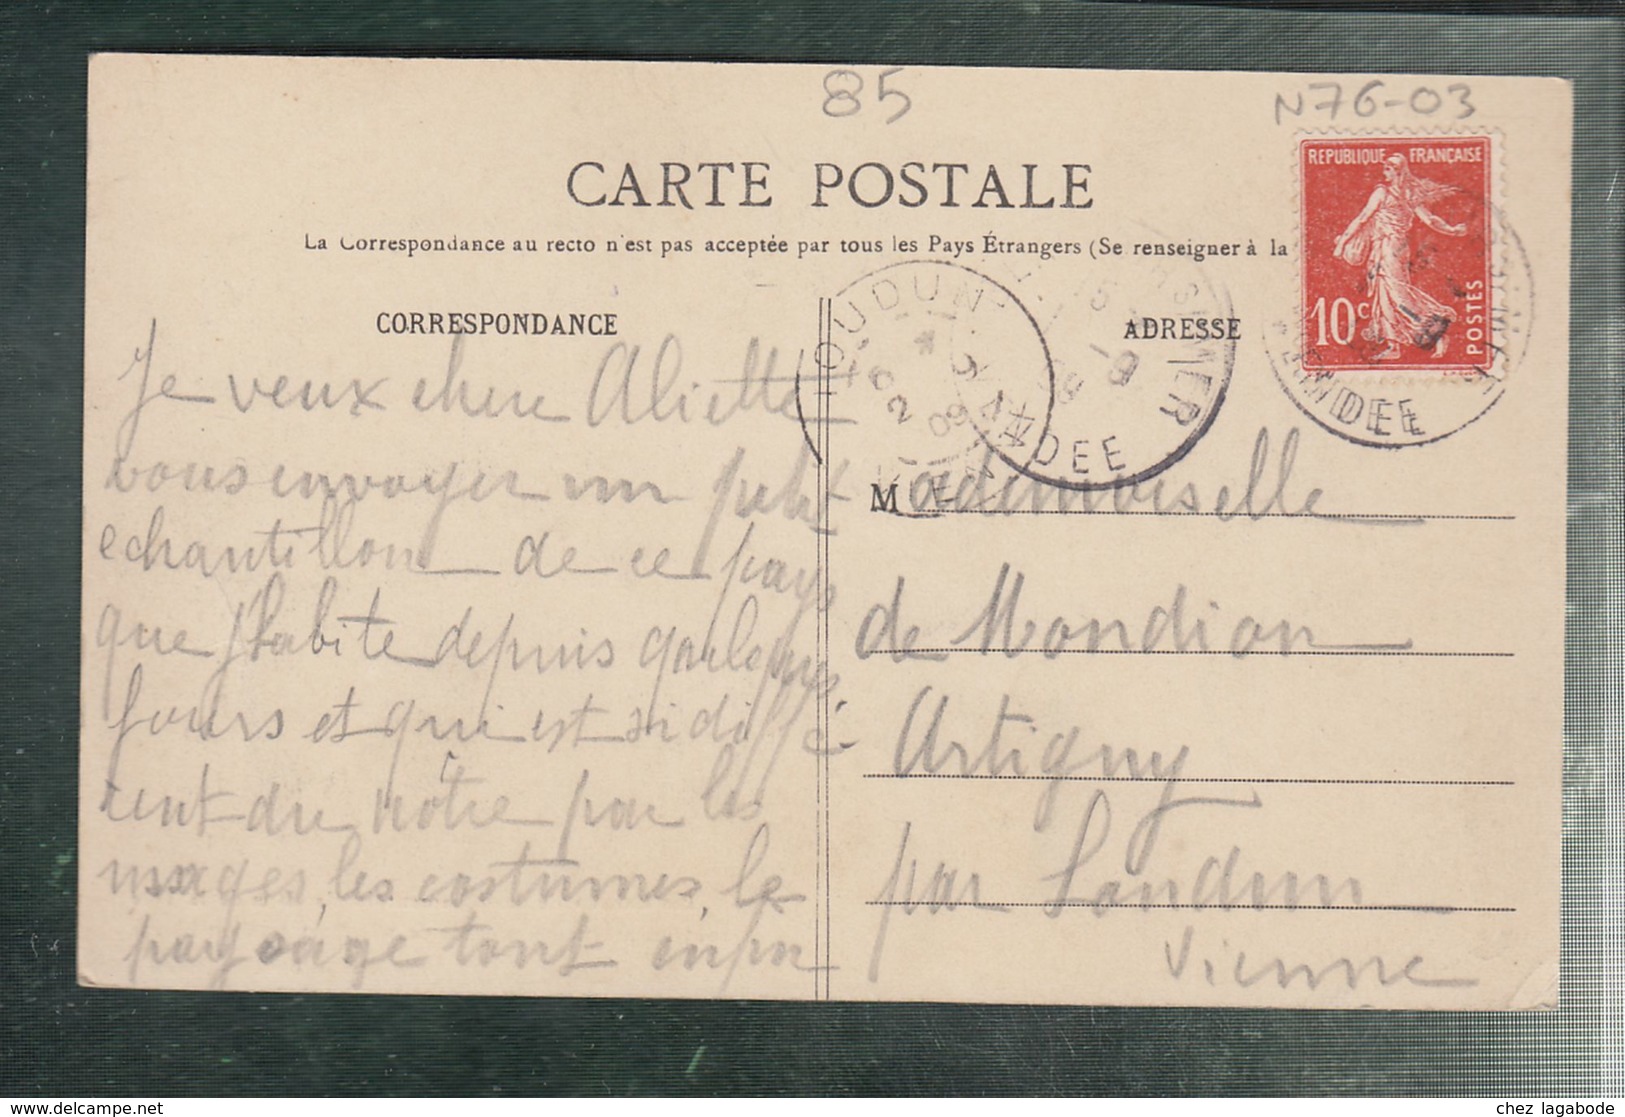 85
N76-03
CARTE POSTALE
REPUBLIQUE FRANÇAISE
10c
POSTES
La Correspondance au recto n'est pas acceptée par tous les Pays Étrangers (Se renseigner à la
CORRESPONDANCE
ADRESSE
LOUDUN
VIENNE
6 2 09
15 -9 09
VENDEE
VENDEE
Je veux chere Aliette
vous envoyer un petit
echantillon de ce pays
que j'habite depuis quelques
jours et qui est si diffé
rent du nôtre par les
usages, les costumes, le
paysage tout enfin
Mademoiselle
de Mondion
Artigny
par Loudun
Vienne
© www.delcampe.net
chez lagabode